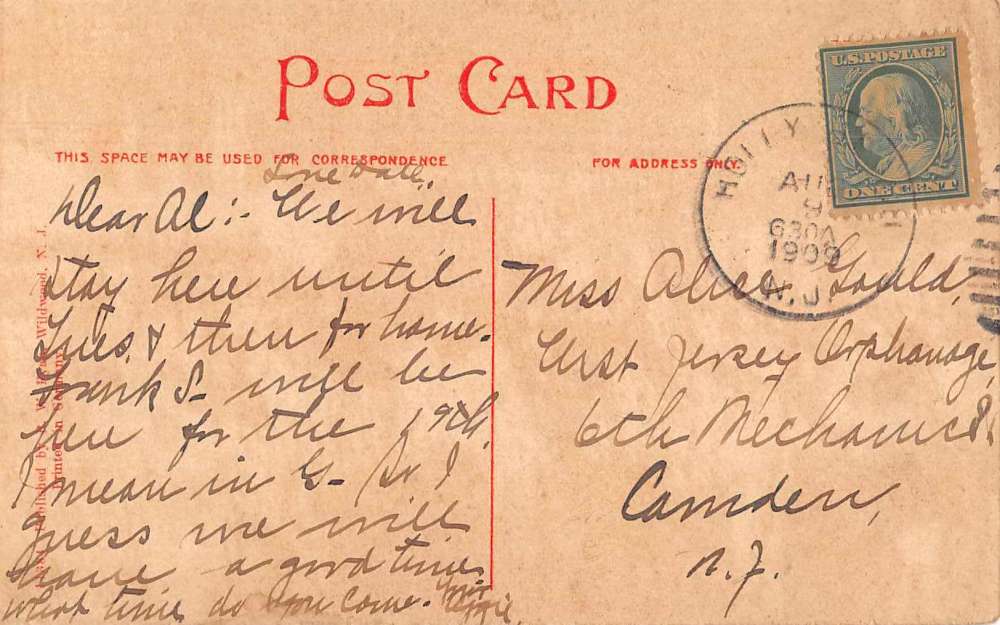 POST CARD
THIS SPACE MAY BE USED FOR CORRESPONDENCE
FOR ADDRESS ONLY.
U.S. POSTAGE
ONE CENT
HOLLY
AUG
9
630A
1909
N.J.
Dear Al:- We will
stay here until
Tues. & then for home.
Frank S- will be
here for the 19th.
I mean in G- So I
guess we will
have a good time.
What time do you come.
Miss Alice Gould,
West Jersey Orphanage,
6th Mechanic St.
Camden,
N.J.
Published by
Wildwood, N. J.
Printed in Germany